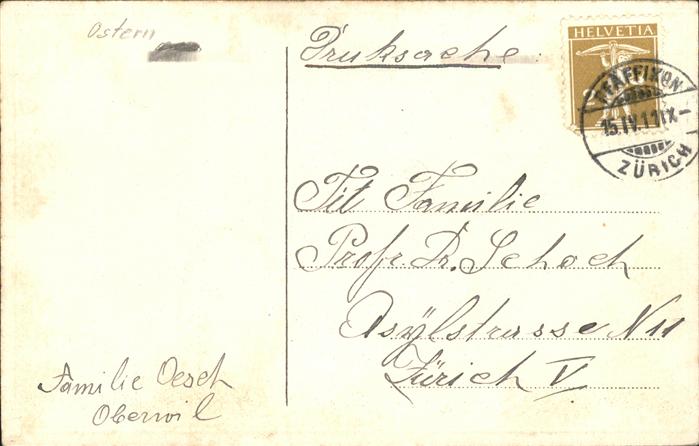 Ostern
Druksache
HELVETIA
PFÄFFIKON
15.IV.11 IX-
ZÜRICH
Tit Familie
Prof. Dr. Schoch
Asÿlstrasse N 11
Zürich V.
Familie Oesch
Oberwil